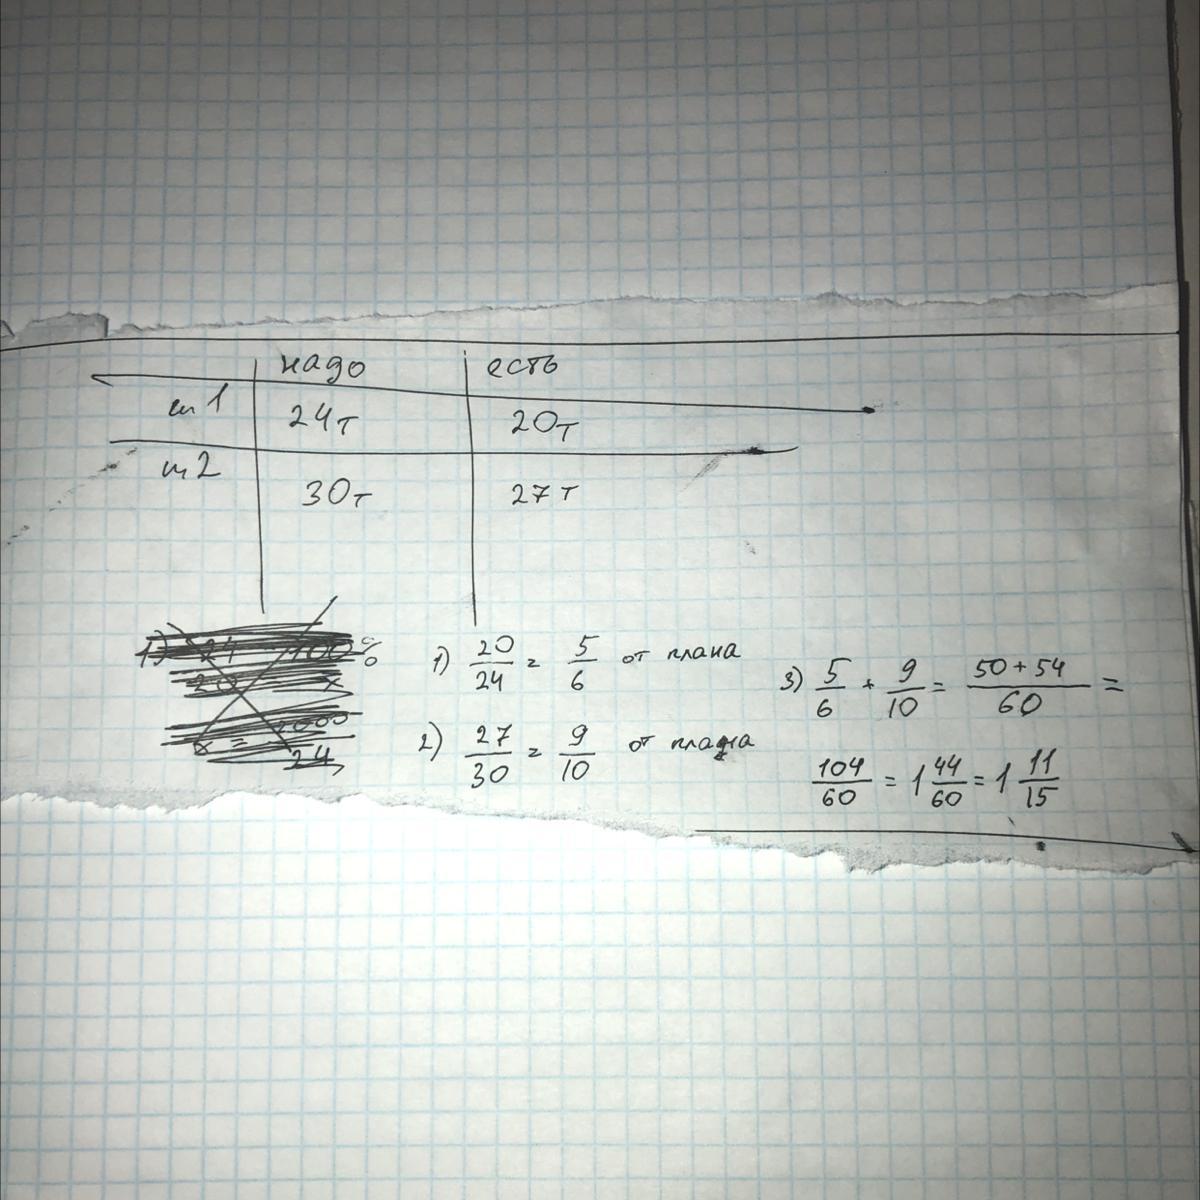 надо есть
ш1 24т 20т
ш2 30т 27т
1) 24 100%
20 x
x = 2000/24
1) 20/24 = 5/6 от плана
2) 27/30 = 9/10 от плана
3) 5/6 + 9/10 = (50+54)/60 =
104/60 = 1 44/60 = 1 11/15